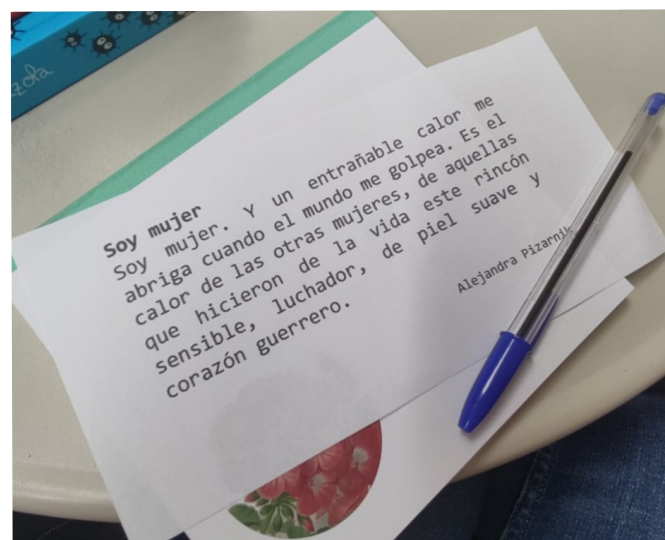 Soy mujer
Soy mujer. Y un entrañable calor me
abriga cuando el mundo me golpea. Es el
calor de las otras mujeres, de aquellas
que hicieron de la vida este rincón
sensible, luchador, de piel suave y
corazón guerrero.
Alejandra Pizarnik